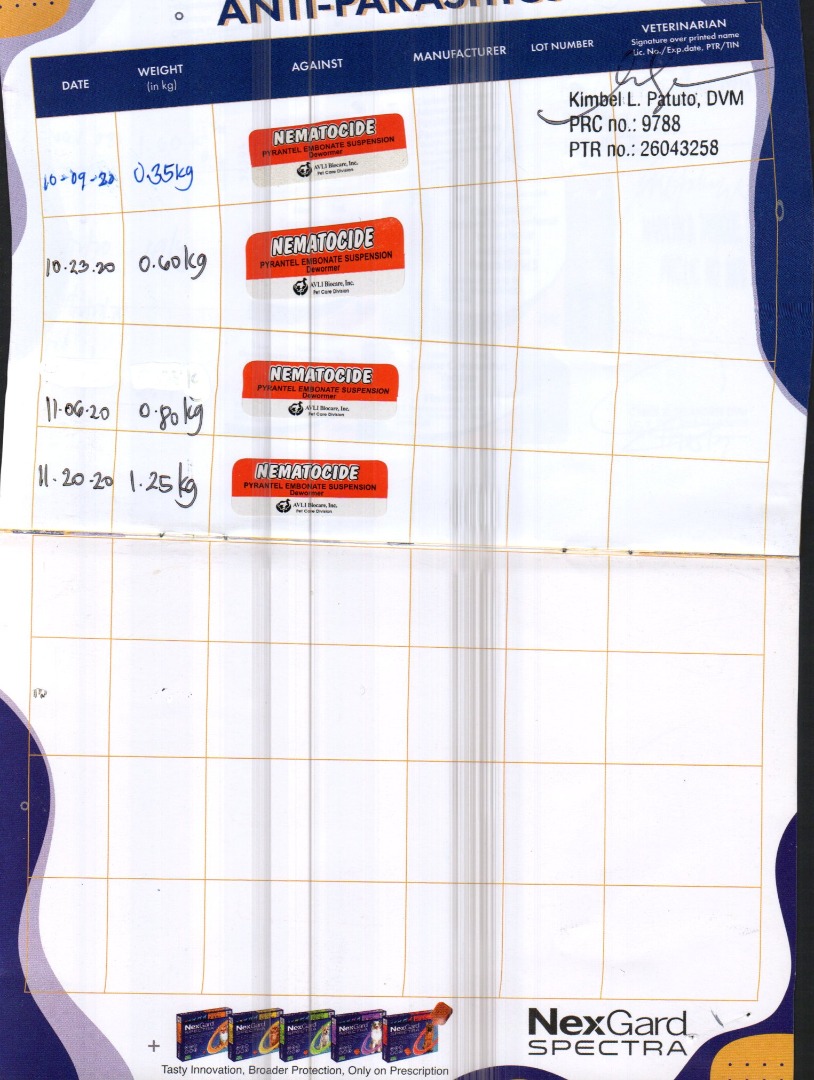 ANTI-PARASITICS
DATE
WEIGHT
(in kg)
AGAINST
MANUFACTURER
LOT NUMBER
VETERINARIAN
Signature over printed name
Lic. No./Exp.date, PTR/TIN
Kimbel L. Patuto, DVM
PRC no.: 9788
PTR no.: 26043258
10-09-20 0.35kg
NEMATOCIDE
PYRANTEL EMBONATE SUSPENSION
Dewormer
AVLI Biocare, Inc.
Pet Care Division
10.23.20 0.60kg
NEMATOCIDE
PYRANTEL EMBONATE SUSPENSION
Dewormer
AVLI Biocare, Inc.
Pet Care Division
11.06.20 0.80kg
NEMATOCIDE
PYRANTEL EMBONATE SUSPENSION
Dewormer
AVLI Biocare, Inc.
Pet Care Division
11.20.20 1.25kg
NEMATOCIDE
PYRANTEL EMBONATE SUSPENSION
Dewormer
AVLI Biocare, Inc.
Pet Care Division
NexGard NexGard NexGard NexGard NexGard
NexGard
SPECTRA
Tasty Innovation, Broader Protection, Only on Prescription